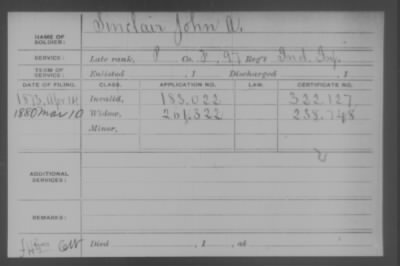 NAME OF SOLDIER: Sinclair John A.
SERVICE: Late rank, P Co. F, 97 Reg't Ind. Inf.
TERM OF SERVICE: Enlisted , 1 Discharged , 1
DATE OF FILING. CLASS. APPLICATION NO. LAW. CERTIFICATE NO.
1873, Apr 14 Invalid, 183.022 322.127
1880 Mar 10 Widow, 261.322 238.748
Minor,
ADDITIONAL SERVICES:
REMARKS:
Died , 1 , at